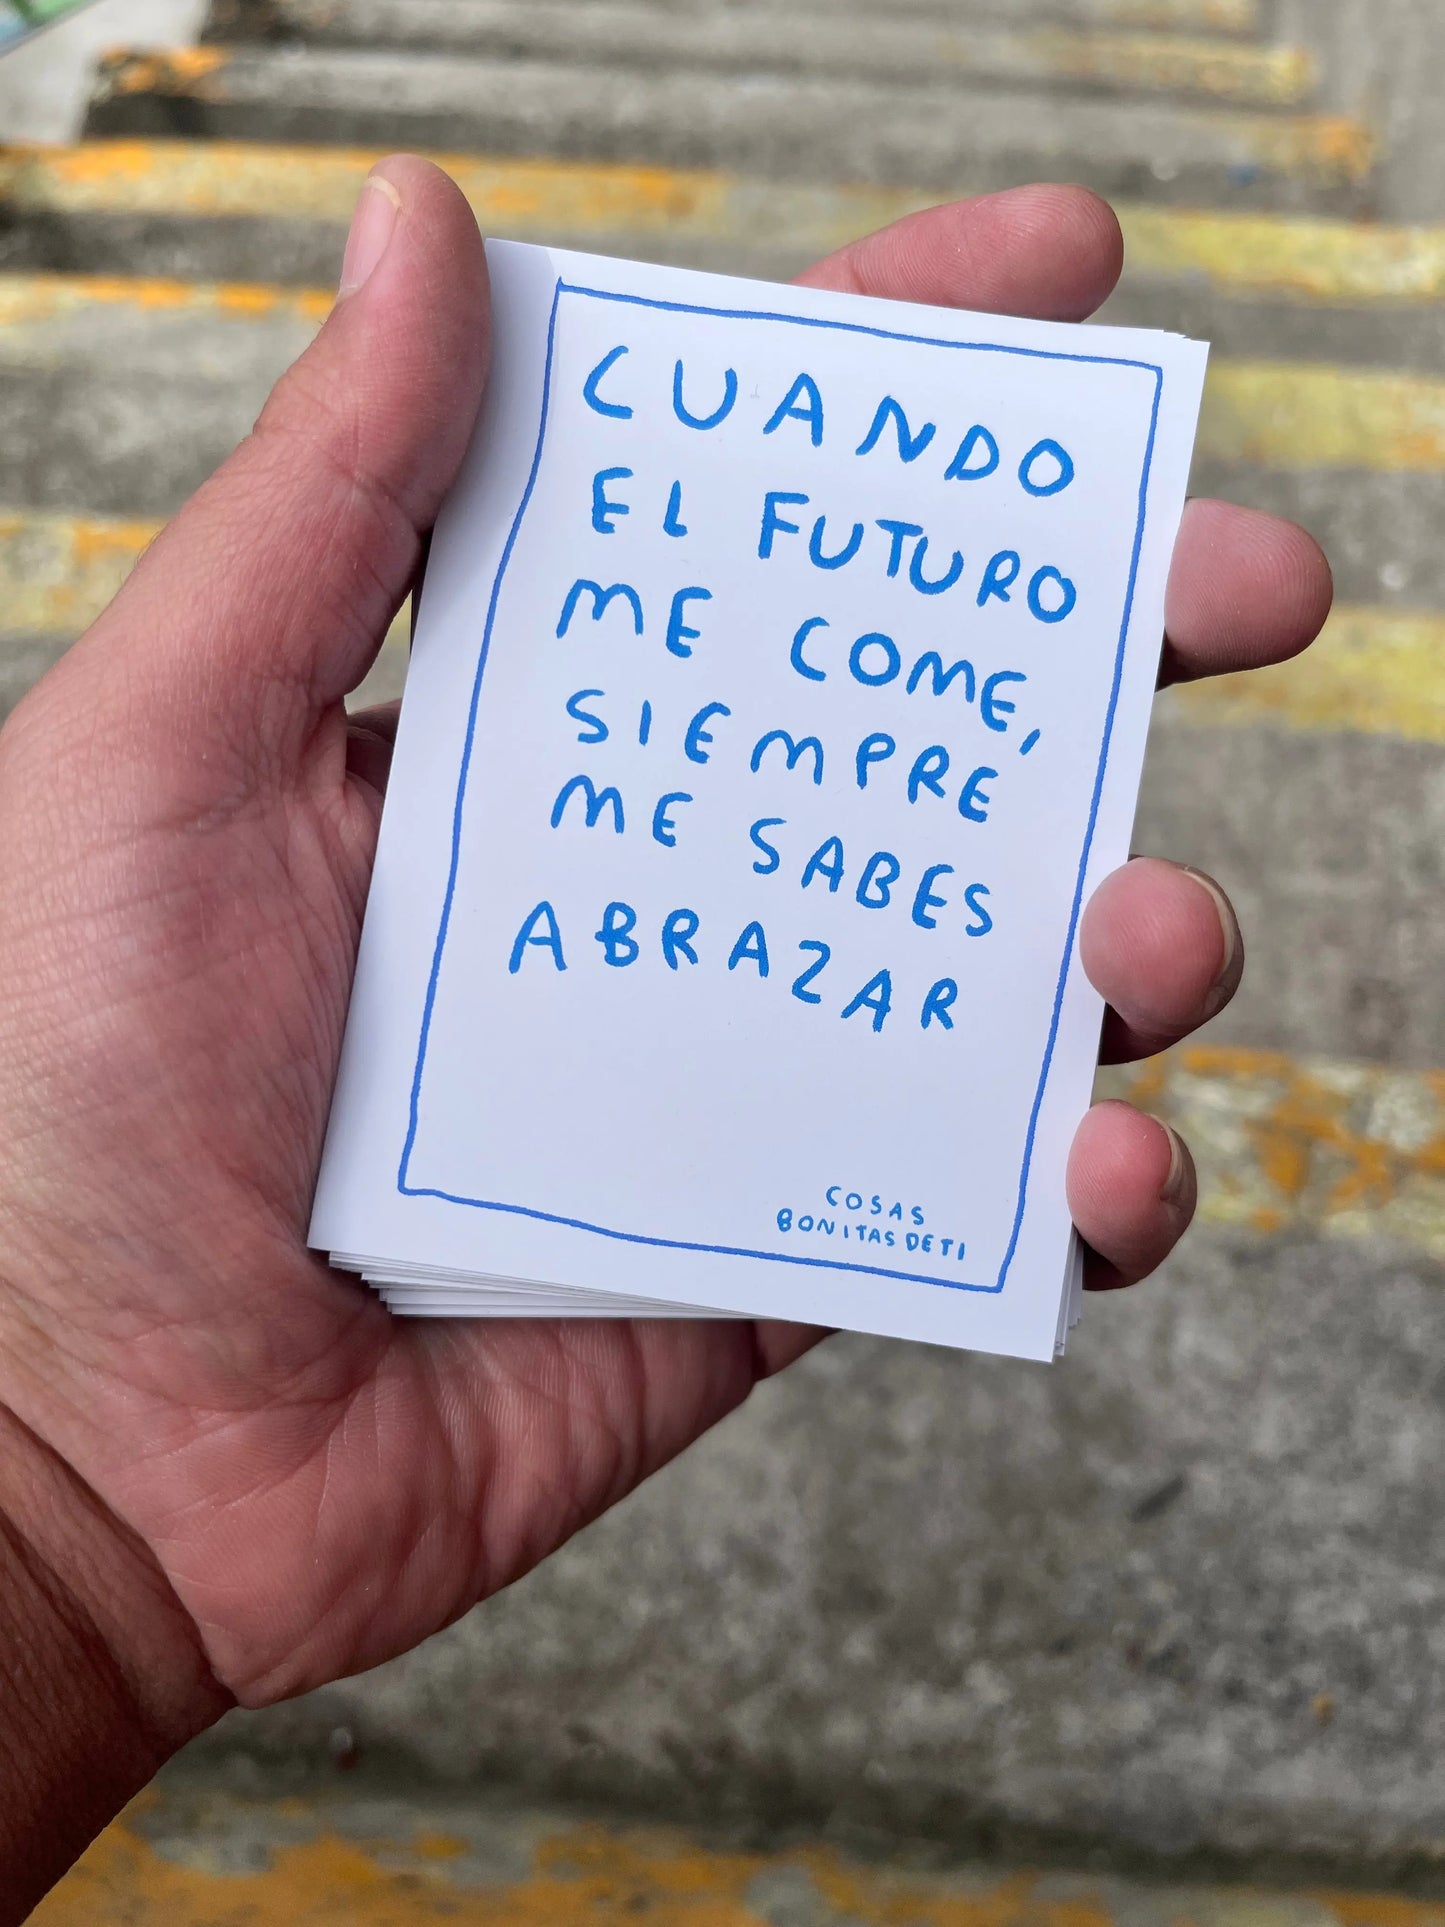 CUANDO
EL FUTURO
ME COME,
SIEMPRE
ME SABES
ABRAZAR
COSAS
BONITAS DE TI